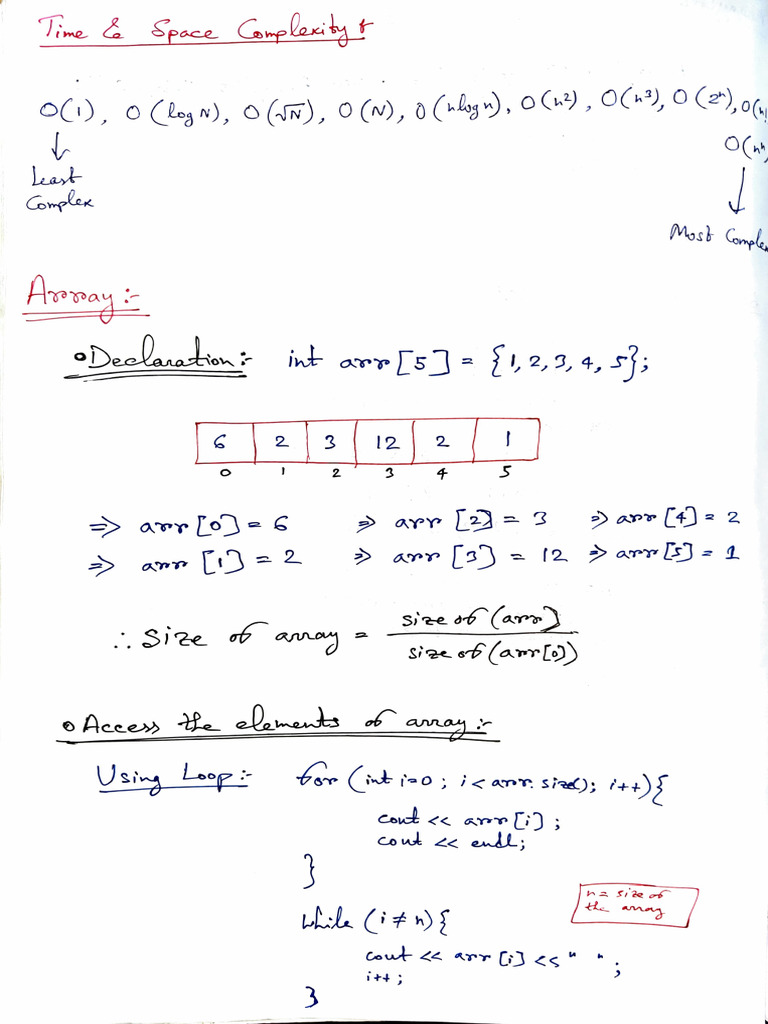 Time & Space Complexity :-
O(1), O(log N), O(√N), O(N), O(n log n), O(n²), O(n³), O(2ⁿ), O(n!
O(nⁿ
↓ ↓
Least
Complex
Most Comple
Array :-
• Declaration :- int arr[5] = {1, 2, 3, 4, 5};
6 2 3 12 2 1
0 1 2 3 4 5
⇒ arr[0] = 6 ⇒ arr[2] = 3 ⇒ arr[4] = 2
⇒ arr[1] = 2 ⇒ arr[3] = 12 ⇒ arr[5] = 1
∴ size of array = size of (arr) / size of (arr[0])
• Access the elements of array :-
Using Loop :- for (int i=0 ; i < arr.size(); i++){
cout << arr[i] ;
cout << endl;
}
n = size of
the array
while (i ≠ n){
cout << arr[i] << " " ;
i++ ;
}